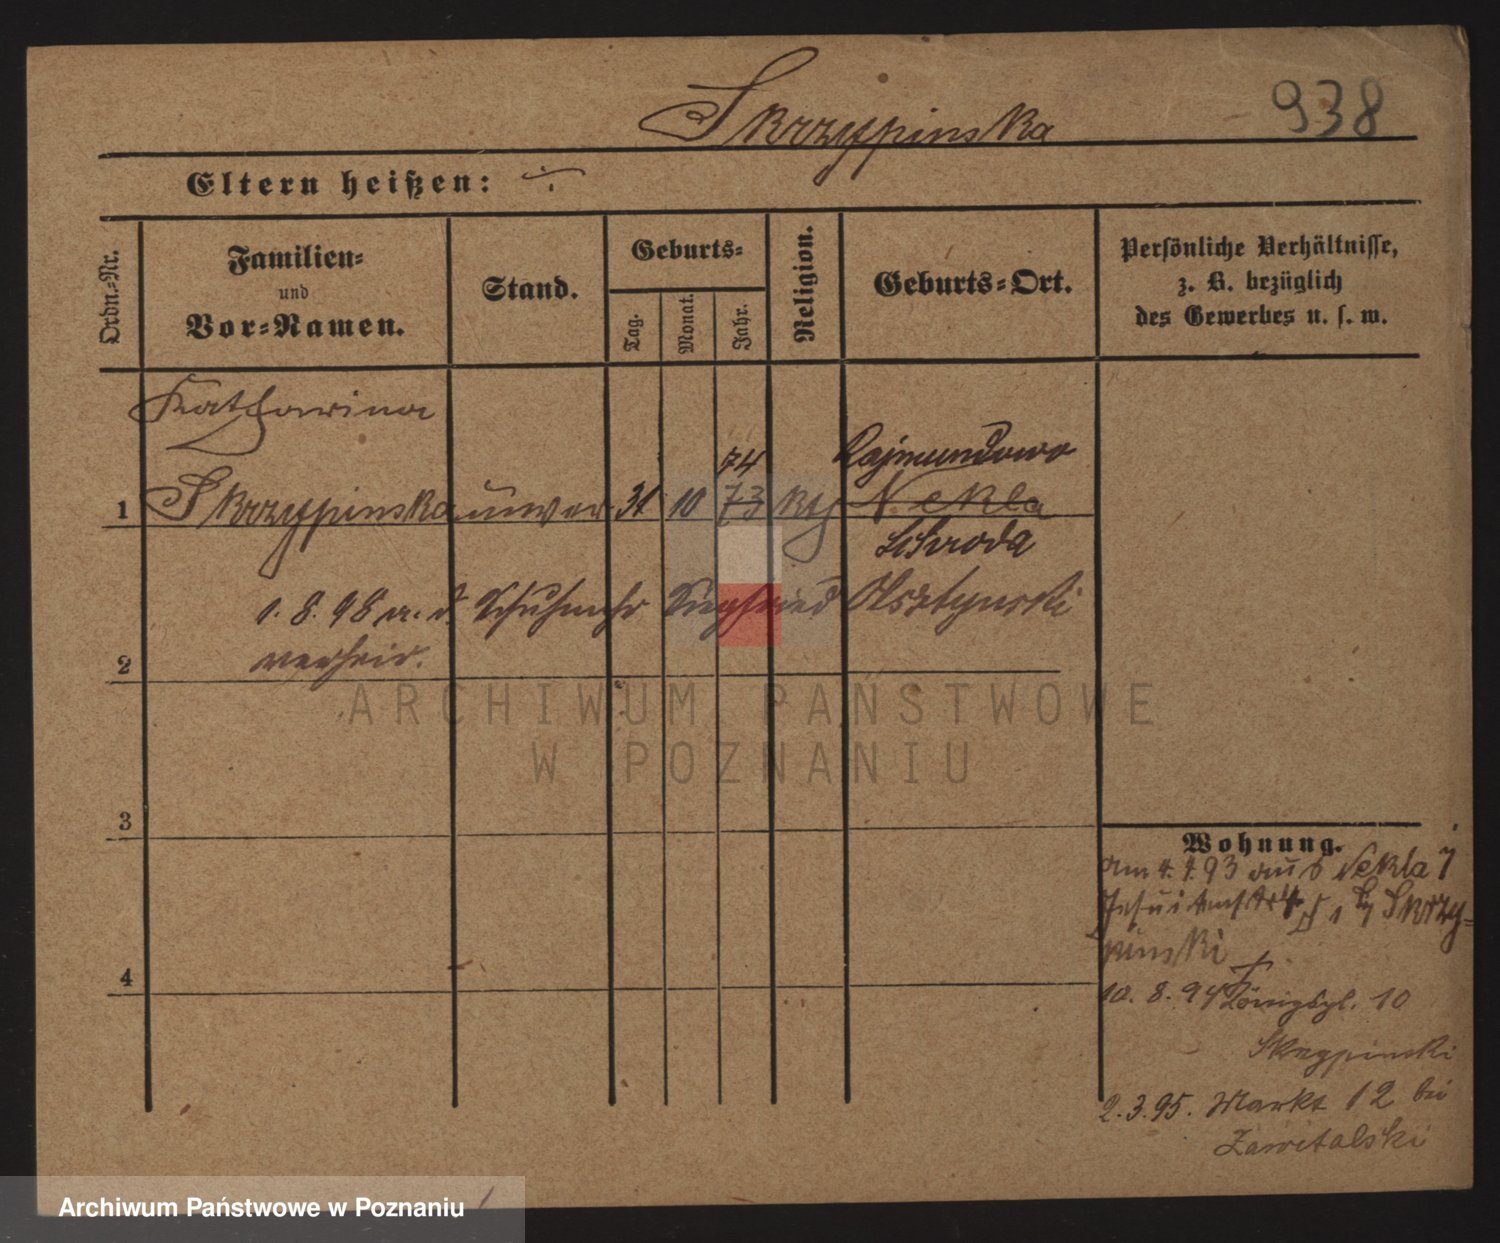 Skrzypinska 938
Eltern heißen: ÷
Ordn.-Nr.
Familien-
und
Vor-Namen.
Stand.
Geburts-
Tag.
Monat.
Jahr.
Religion.
Geburts-Ort.
Persönliche Verhältnisse,
z. B. bezüglich
des Gewerbes u. s. w.
Katharina
74 Rajmundowo
1 Skrzypinska unver 31 10 73 kth Nekla
Schroda
1. 8. 98 m. d. Schuhmchr Siegfried Olsztynski
2 verheir.
ARCHIWUM PAŃSTWOWE
W POZNANIU
3
Wohnung.
am 4. 4. 93 aus Nekla
Jesuitenstr 4 Skrzy-
pinski
4
10. 8. 94 Königspl. 10
Skrzypinski
2. 3. 95. Markt 12 bei
Zawitalski
Archiwum Państwowe w Poznaniu